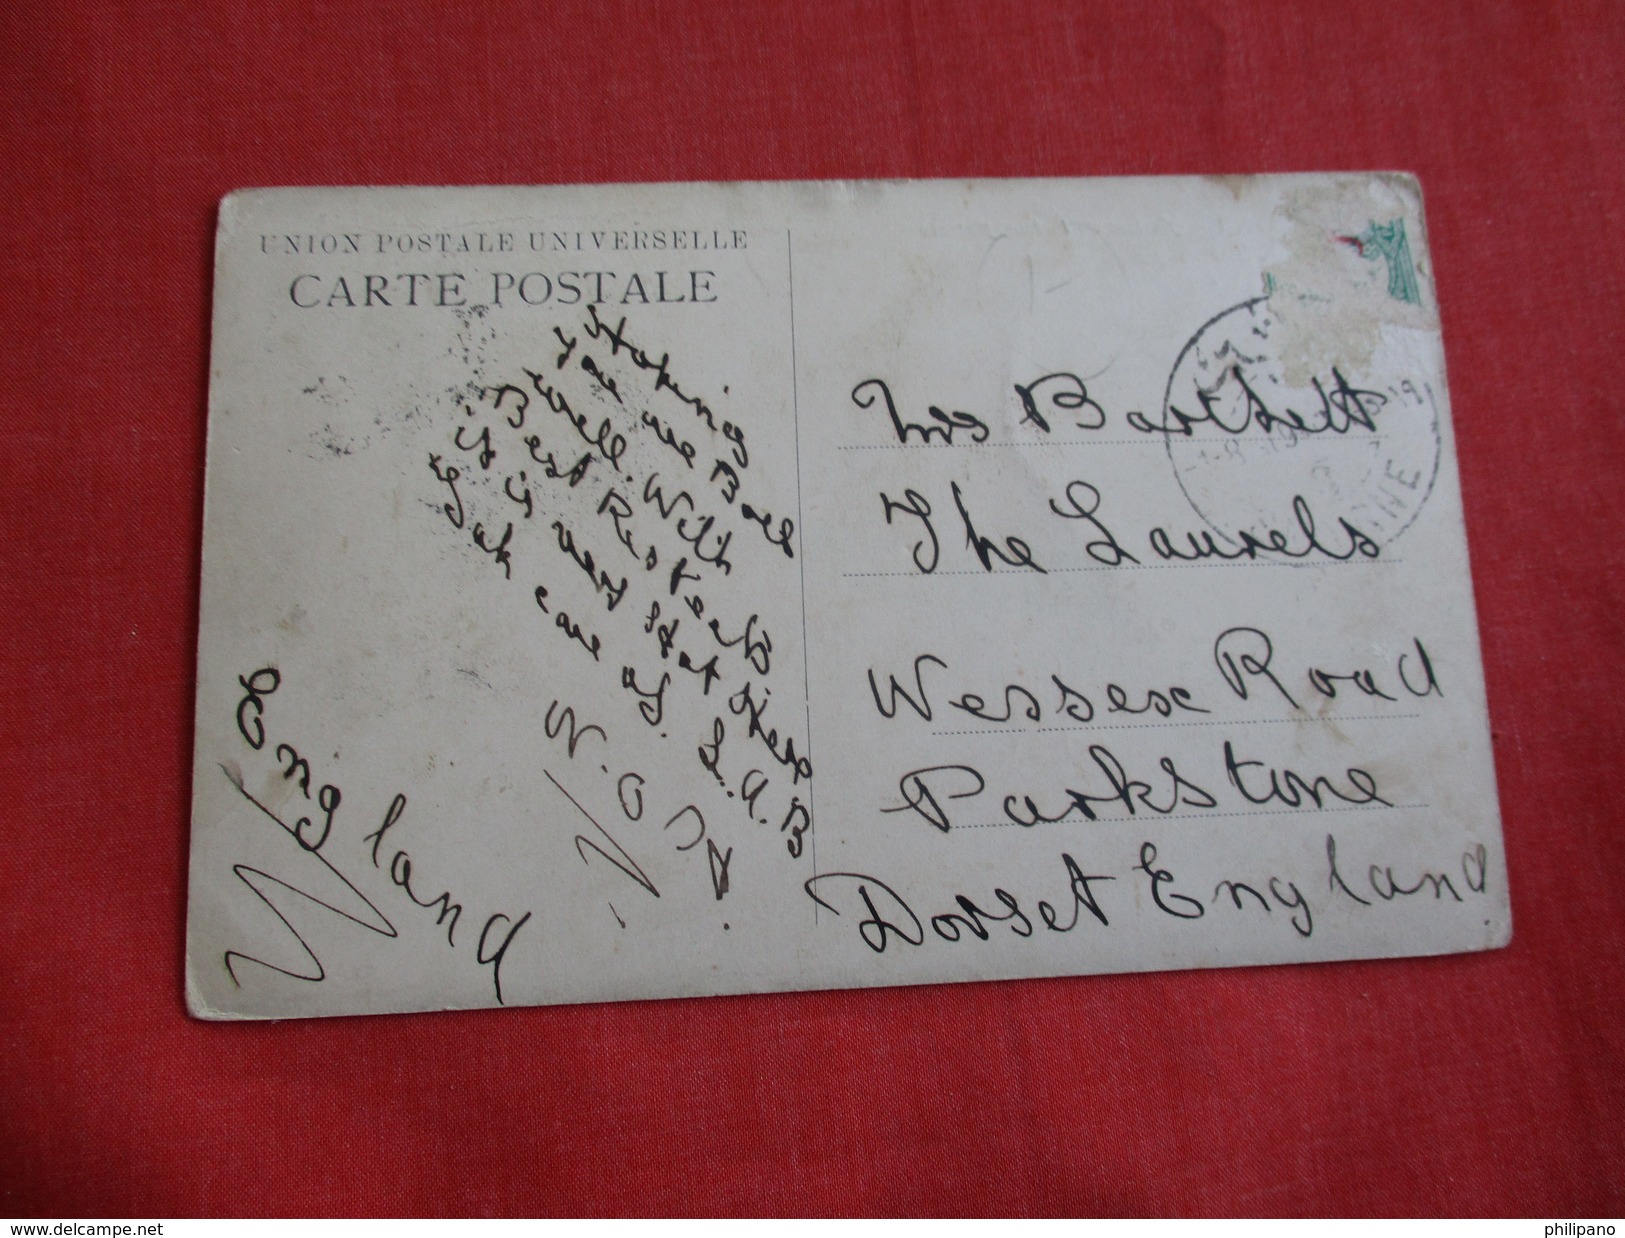 UNION POSTALE UNIVERSELLE
CARTE POSTALE
Hoping
you are Boll
well. With
Best Rigkerts
it is very Hot Here
took care of. L.A.B
England
Mrs Bartlett
The Laurels
Wessex Road
Parkstone
Dorset England
delcampe.net
philipano